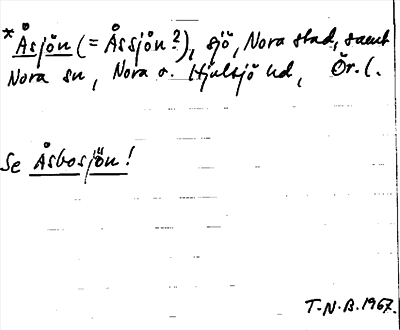 *Åsjön (= Åssjön?), sjö, Nora stad, samt
Nora sn, Nora o. Hjulsjö hd, Ör.l.
Se Åsbosjön!
T.N.B. 1967.